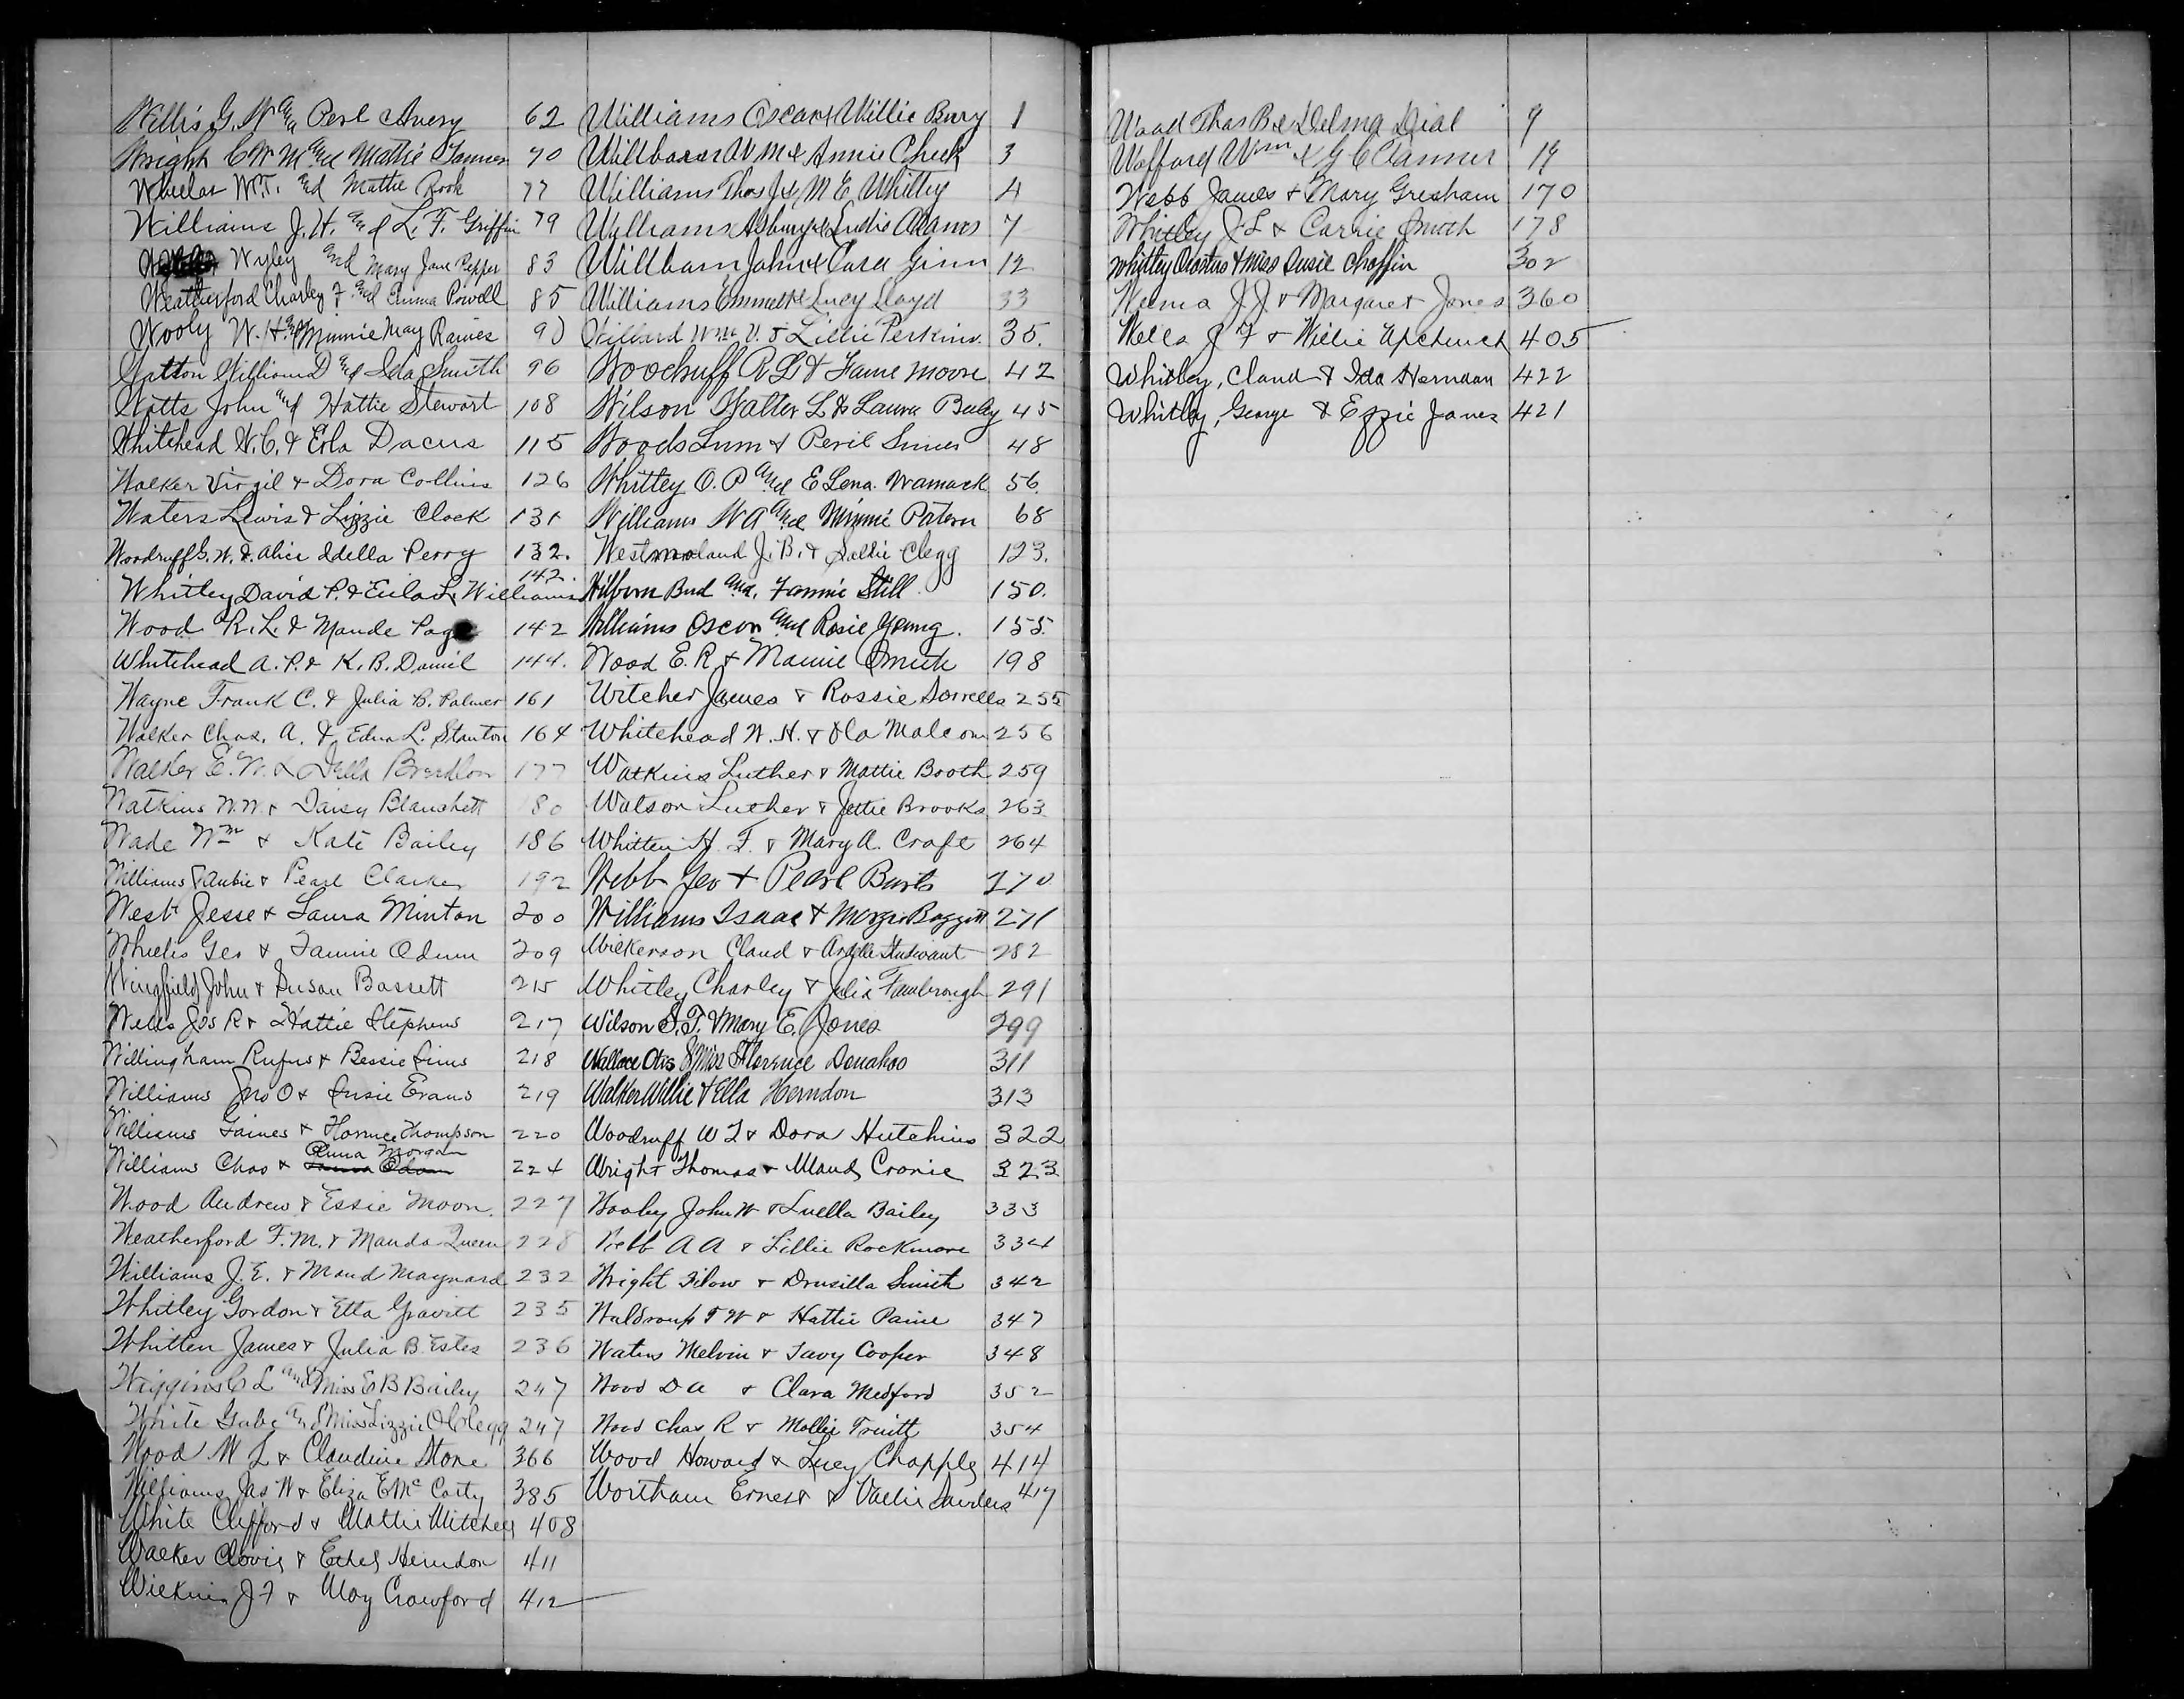 Willis G. W. and Perl Avery 62
Wright C W M and Mattie Tanner 70
Wheelas W.T. and Mattie Rook 77
Williams J. H. and L. F. Griffin 79
Wyley and Mary Jane Pepper 83
Weatherford Charley F. and Emma Powell 85
Wooly W. H. and Minnie May Raines 90
Watson William D and Ida Smith 96
Watts John and Hattie Stewart 108
Whitehead W. C. & Eola Dacus 115
Walker Virgil & Dora Collins 126
Waters Lewis & Lizzie Clack 131
Woodruff G. W. & Alice Idella Perry 132.
Whitley David P. & Eula L. Williams 142.
Wood R. L. & Maude Page 142
Whitehead A. P. & K. B. Daniel 144.
Wayne Frank C. & Julia B. Palmer 161
Walker Chas. A. & Edna L. Stanton 164
Walker E. W. & Della 177
Watkins W. W. & Daisy Blanchett 180
Wade Wm & Kate Bailey 186
Williams & Pearl Clarke 192
West Jesse & Laura Minton 200
Wheelis Geo & Fannie Odum 209
Wingfield John & Susan Bassett 215
Wells Jos R & Hattie Stephens 217
Willingham Rufus & Bessie Sims 218
Williams Jno O & Susie Evans 219
Williams Gaines & Florence Thompson 220
Williams Chas & Anna Morgan 224
Wood Andrew & Essie Moon. 227
Weatherford F. M. & Manda Queen 228
Williams J. E. & Maud Maynard 232
Whitley Gordon & Etta Gravitt 235
Whitten James & Julia B. Estes 236
Wiggins C L and Miss E B Bailey 247
White Gabe and Miss Lizzie O Clegg 247
Wood W L & Claudine Stone 366
Williams Jas W & Eliza E McCarty 385
White Clifford & Mattie Mitchell 408
Walker Clovis & Ethel Herndon 411
Wilkins J F & May Crawford 412
Williams Oscar & Willie Bury 1
W M & Annie Cheek 3
Williams Thos J & M E Whitley 4
Williams Asbury & Adams 7
Willbarn John & Cara Ginn 12
Williams Emmett & Lucy Loyd 33
Willard Wm V. & Lillie Perkins. 35.
Woodruff R L & Fanie Moore 42
Wilson Walter L & Laura 45
Woods Lum & Sims 48
Whitley O. P and E Lena Wamack 56.
Williams W A and Minnie Patern 68
Westmoland J. B. & Sallie Clegg 123.
Wilborn Bud and. Fannie Still 150.
Williams Oscar and Rosie Young. 155.
Wood E. R & Mamie Smith 198
Witcher James & Rossie Sorrells 255
Whitehead W. H. & Ola Malcom 256
Watkins Luther & Mattie Booth 259
Watson Luther & Jettie Brooks 263
Whitten H. F. & Mary A. Craft 264
Webb Geo + Pearl 270
Williams Isaac & 271
Wilkerson Claud & 282
Whitley Charley & Julia Fambrough 291
Wilson S. T. & Mary E. Jones 299
Wallace Otis & Miss Florence Donahoo 311
Walker Willie & Ella Herndon 313
Woodruff W L & Dora Hutchins 322
Wright Thomas & Maud Cronic 323
Wooley John W & Luella Bailey 333
Webb A A & Lillie Rockmore 334
Wright & Drusilla Smith 342
Waldroup T W & Hattie Paine 347
Waters Melvin & Cooper 348
Wood D A & Clara Medford 352
Wood Chas R & Mollie Truitt 354
Wood Howard & Lucy Chapple 414
Wortham Ernest & 417
Wood Thos B & Delma Dial 9
Wofford Wm & G C Tanner 19
Webb James & Mary Gresham 170
Whitley J L & Carrie Smith 178
Whitley & Miss Susie Chaffin 302
J. J. & Margaret Jones 360
Wells J F & Willie Upchurch 405
Whitley, Claud & Ida Herndon 422
Whitley, George & Jones 421